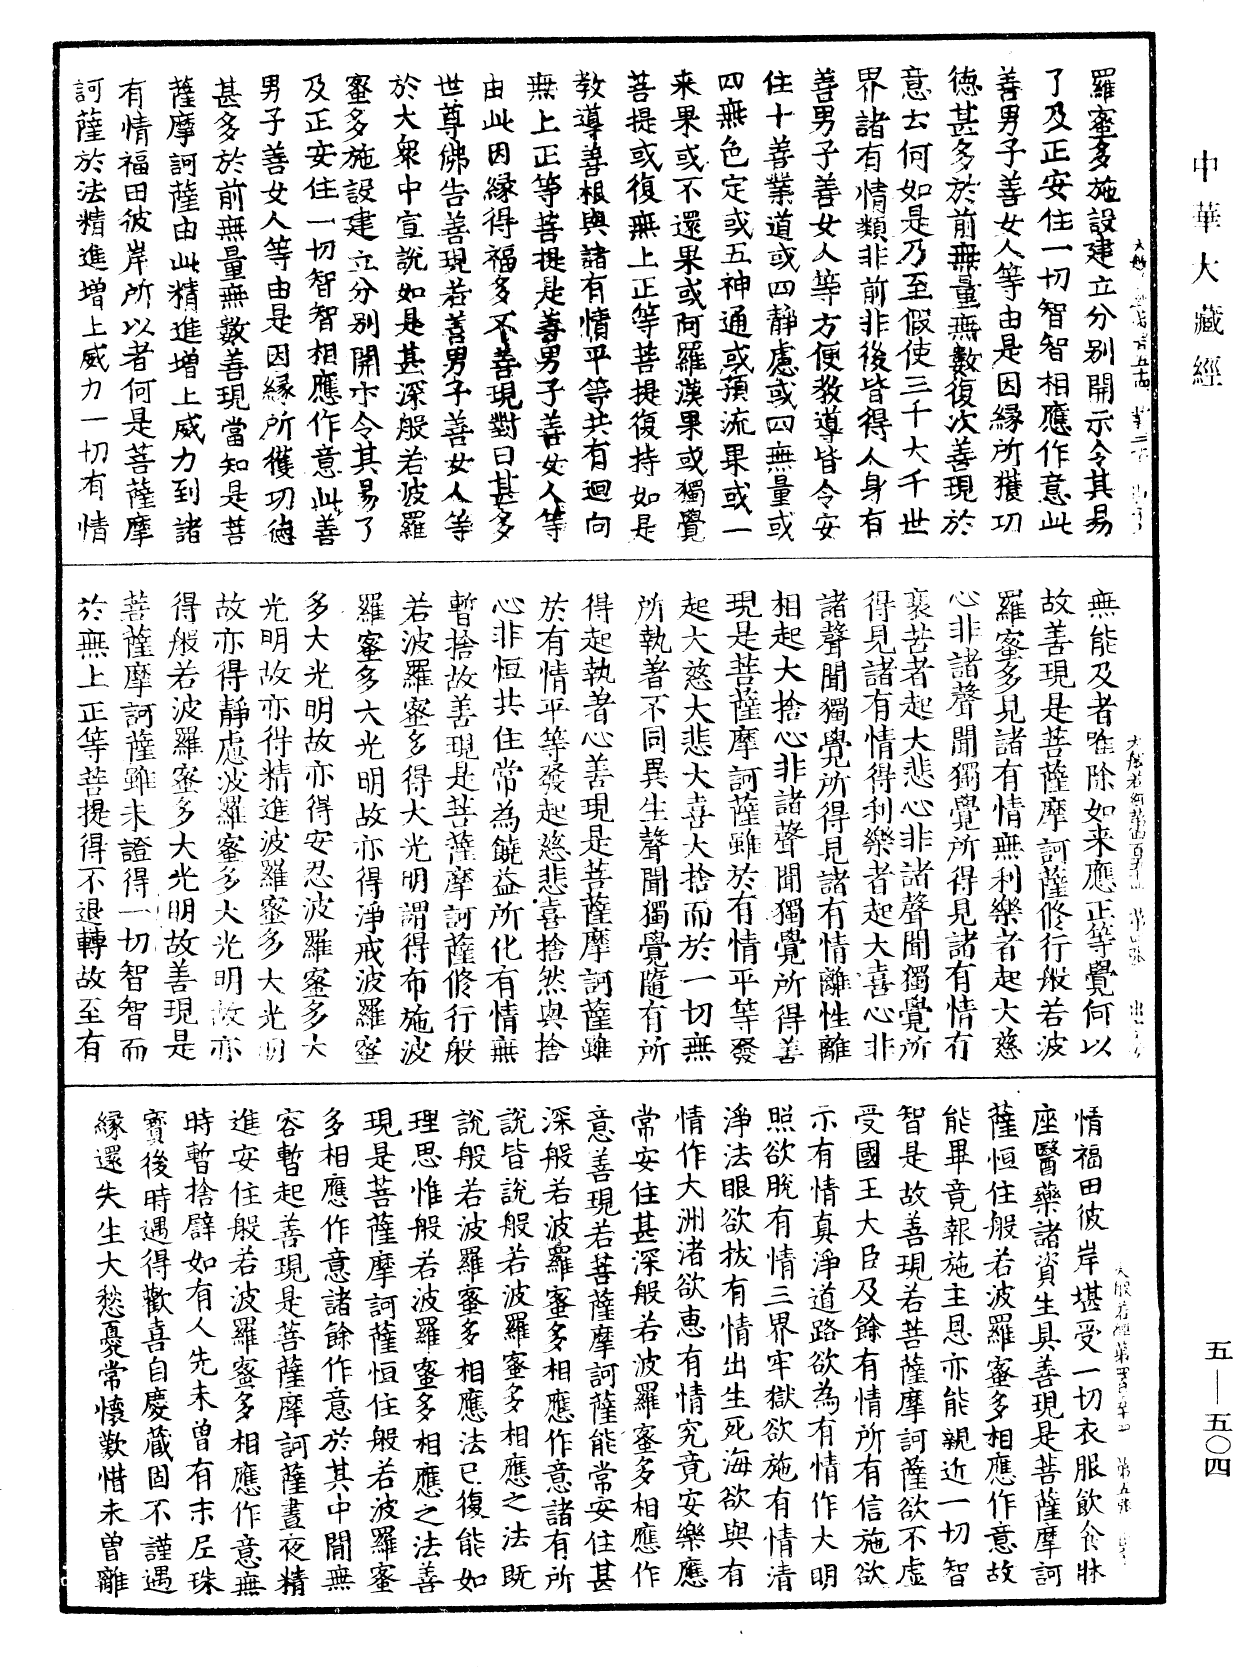 中華大藏經
羅蜜多施設建立分別開示令其易
了及正安住一切智智相應作意此
善男子善女人等由是因緣所獲功
德甚多於前無量無數復次善現於
意云何如是乃至假使三千大千世
界諸有情類非前非後皆得人身有
善男子善女人等方便教導皆令安
住十善業道或四靜慮或四無量或
四無色定或五神通或預流果或一
来果或不還果或阿羅漢果或獨覺
菩提或復無上正等菩提復持如是
教導善根與諸有情平等共有迴向
無上正等菩提是善男子善女人等
由此因緣得福多不善現對曰甚多
世尊佛告善現若善男子善女人等
於大衆中宣說如是甚深般若波羅
蜜多施設建立分別開示令其易了
及正安住一切智智相應作意此善
男子善女人等由是因緣所獲功德
甚多於前無量無數善現當知是菩
薩摩訶薩由此精進增上威力到諸
有情福田彼岸所以者何是菩薩摩
訶薩於法精進增上威力一切有情
無能及者唯除如来應正等覺何以
故善現是菩薩摩訶薩修行般若波
羅蜜多見諸有情無利樂者起大慈
心非諸聲聞獨覺所得見諸有情有
衰苦者起大悲心非諸聲聞獨覺所
得見諸有情得利樂者起大喜心非
諸聲聞獨覺所得見諸有情離性離
相起大捨心非諸聲聞獨覺所得善
現是菩薩摩訶薩雖於有情平等發
起大慈大悲大喜大捨而於一切無
所執著不同異生聲聞獨覺隨有所
得起執著心善現是菩薩摩訶薩雖
於有情平等發起慈悲喜捨然與捨
心非恒共住常為饒益所化有情無
暫捨故善現是菩薩摩訶薩修行般
若波羅蜜多得大光明謂得布施波
羅蜜多大光明故亦得淨戒波羅蜜
多大光明故亦得安忍波羅蜜多大
光明故亦得精進波羅蜜多大光明
故亦得靜慮波羅蜜多大光明故亦
得般若波羅蜜多大光明故善現是
菩薩摩訶薩雖未證得一切智智而
於無上正等菩提得不退轉故至有
情福田彼岸堪受一切衣服飲食牀
座醫藥諸資生具善現是菩薩摩訶
薩恒住般若波羅蜜多相應作意故
能畢竟報施主恩亦能親近一切智
智是故善現若菩薩摩訶薩欲不虛
受國王大臣及餘有情所有信施欲
示有情真淨道路欲為有情作大明
照欲脫有情三界牢獄欲施有情清
淨法眼欲拔有情出生死海欲與有
情作大洲渚欲惠有情究竟安樂應
常安住甚深般若波羅蜜多相應作
意善現若菩薩摩訶薩能常安住甚
深般若波羅蜜多相應作意諸有所
說皆說般若波羅蜜多相應之法既
說般若波羅蜜多相應法已復能如
理思惟般若波羅蜜多相應之法善
現是菩薩摩訶薩恒住般若波羅蜜
多相應作意諸餘作意於其中間無
容暫起善現是菩薩摩訶薩晝夜精
進安住般若波羅蜜多相應作意無
時暫捨譬如有人先未曾有末尼珠
寶後時遇得歡喜自慶藏固不謹遇
緣還失生大愁憂常懷歎惜未曾離
五—五〇四